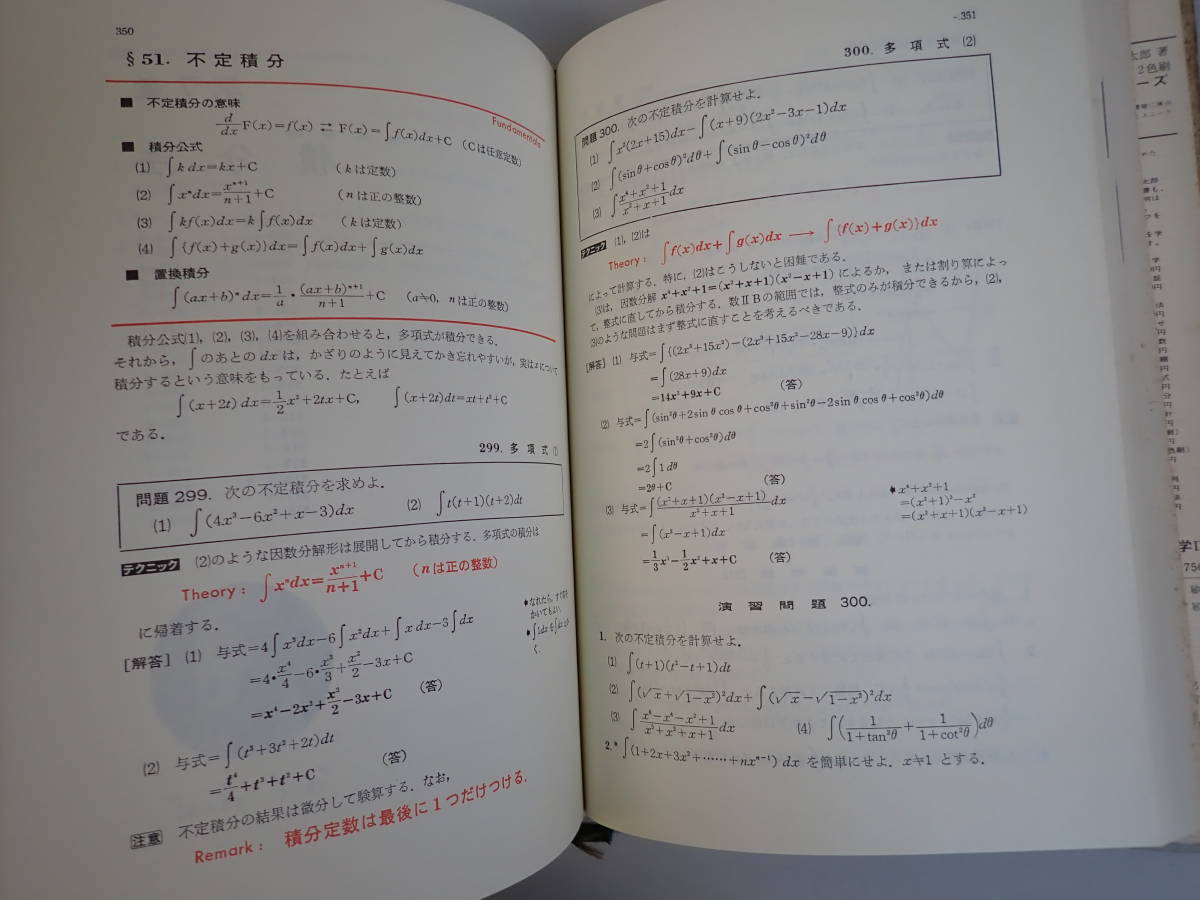 350
§51. 不定積分
Fundamentals
■ 不定積分の意味
d/dx F(x)=f(x) ⇄ F(x)=∫f(x)dx+C (Cは任意定数)
■ 積分公式
(1) ∫k dx=kx+C (kは定数)
(2) ∫xⁿdx=xⁿ⁺¹/n+1+C (nは正の整数)
(3) ∫kf(x)dx=k∫f(x)dx (kは定数)
(4) ∫{f(x)+g(x)}dx=∫f(x)dx+∫g(x)dx
■ 置換積分
∫(ax+b)ⁿdx=1/a・(ax+b)ⁿ⁺¹/n+1+C (a≠0, nは正の整数)
積分公式(1), (2), (3), (4)を組み合わせると, 多項式が積分できる.
それから, ∫のあとの dx は, かざりのように見えてかき忘れやすいが, 実はxについて
積分するという意味をもっている. たとえば
∫(x+2t) dx=1/2x²+2tx+C, ∫(x+2t)dt=xt+t²+C
である.
299. 多項式(1)
問題 299. 次の不定積分を求めよ.
(1) ∫(4x³−6x²+x−3)dx (2) ∫t(t+1)(t+2)dt
テクニック (2)のような因数分解形は展開してから積分する. 多項式の積分は
Theory: ∫xⁿdx=xⁿ⁺¹/n+1+C (nは正の整数)
に帰着する.
[解答] (1) 与式=4∫x³dx−6∫x²dx+∫x dx−3∫dx
=4・x⁴/4−6・x³/3+x²/2−3x+C
=x⁴−2x³+x²/2−3x+C (答)
(2) 与式=∫(t³+3t²+2t)dt
=t⁴/4+t³+t²+C (答)
注意 不定積分の結果は微分して験算する. なお,
Remark: 積分定数は最後に1つだけつける.
*なれたら, すぐ答を
かいてもよい.
*∫1dx を∫dx とか
く.
351
300. 多項式(2)
問題 300. 次の不定積分を計算せよ.
(1) ∫x²(2x+15)dx−∫(x+9)(2x²−3x−1)dx
(2) ∫(sinθ+cosθ)²dθ+∫(sinθ−cosθ)²dθ
(3) ∫x⁴+x²+1/x²+x+1 dx
テクニック (1), (2)は
Theory: ∫f(x)dx+∫g(x)dx ⟶ ∫{f(x)+g(x)}dx
によって計算する. 特に, (2)はこうしないと困難である.
(3)は, 因数分解 x⁴+x²+1=(x²+x+1)(x²−x+1) によるか, または割り算によっ
て, 整式に直してから積分する. 数ⅡBの範囲では, 整式のみが積分できるから, (2),
(3)のような問題はまず整式に直すことを考えるべきである.
[解答] (1) 与式=∫{(2x³+15x²)−(2x³+15x²−28x−9)}dx
=∫(28x+9)dx
=14x²+9x+C (答)
(2) 与式=∫(sin²θ+2sinθcosθ+cos²θ+sin²θ−2sinθcosθ+cos²θ)dθ
=2∫(sin²θ+cos²θ)dθ
=2∫1dθ
=2θ+C (答)
(3) 与式=∫(x²+x+1)(x²−x+1)/x²+x+1 dx
=∫(x²−x+1)dx
=1/3x³−1/2x²+x+C (答)
*x⁴+x²+1
=(x²+1)²−x²
=(x²+x+1)(x²−x+1)
演習問題 300.
1. 次の不定積分を計算せよ.
(1) ∫(t+1)(t²−t+1)dt
(2) ∫(√x+√1−x²)²dx+∫(√x−√1−x²)²dx
(3) ∫x⁶−x⁴−x²+1/x³+x²+x+1 dx (4) ∫(1/1+tan²θ+1/1+cot²θ)dθ
2.* ∫(1+2x+3x²+……+nxⁿ⁻¹) dx を簡単にせよ. x≠1 とする.
太郎 著
2色刷
ーズ